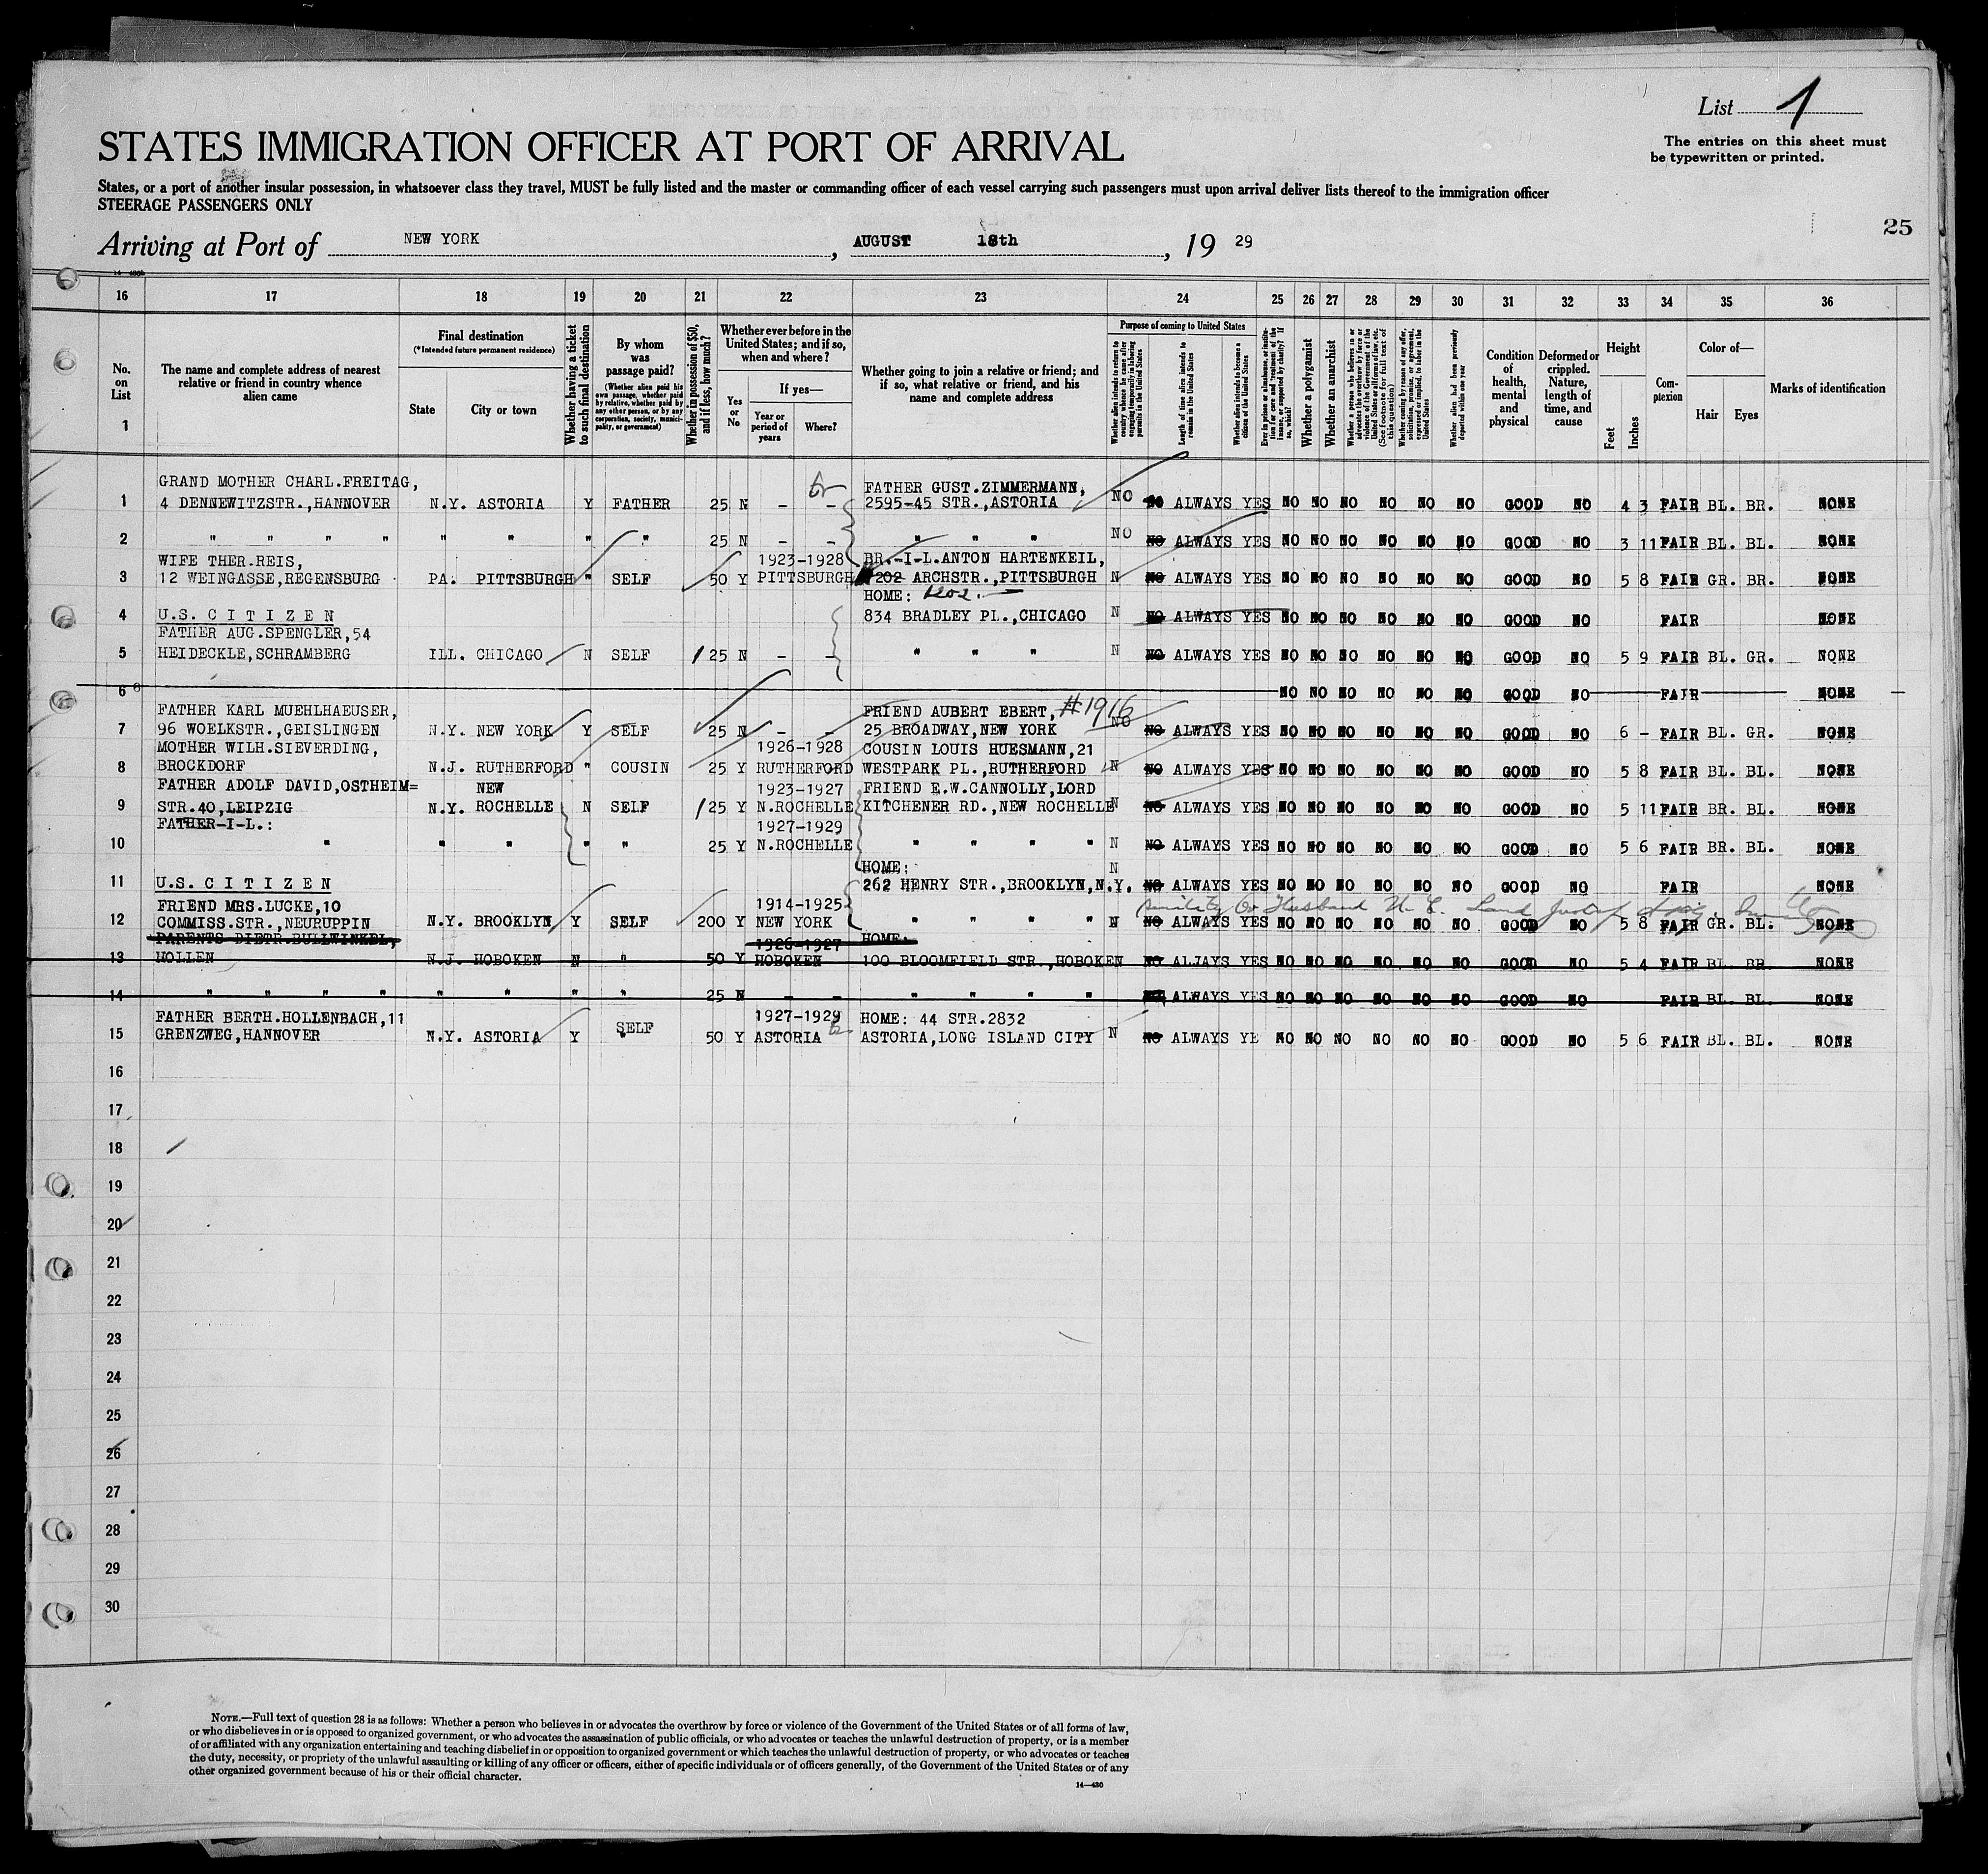 List 1
The entries on this sheet must
be typewritten or printed.
STATES IMMIGRATION OFFICER AT PORT OF ARRIVAL
States, or a port of another insular possession, in whatsoever class they travel, MUST be fully listed and the master or commanding officer of each vessel carrying such passengers must upon arrival deliver lists thereof to the immigration officer
STEERAGE PASSENGERS ONLY
25
Arriving at Port of NEW YORK, AUGUST 18th, 19 29
16 17 18 19 20 21 22 23 24 25 26 27 28 29 30 31 32 33 34 35 36
No. on List
1
The name and complete address of nearest relative or friend in country whence alien came
Final destination
(*Intended future permanent residence)
State
City or town
Whether having a ticket to such final destination
By whom was passage paid?
(Whether alien paid his own passage, whether paid by relative, whether paid by any other person, or by any corporation, society, municipality, or government)
Whether in possession of $50, and if less, how much?
Whether ever before in the United States; and if so, when and where?
Yes or No
If yes—
Year or period of years
Where?
Whether going to join a relative or friend; and if so, what relative or friend, and his name and complete address
Purpose of coming to United States
Whether alien intends to return to country whence he came after engaging temporarily in laboring pursuits in the United States
Length of time alien intends to remain in the United States
Whether alien intends to become a citizen of the United States
Ever in prison or almshouse, or institution for care and treatment of the insane, or supported by charity? If so, which?
Whether a polygamist
Whether an anarchist
Whether a person who believes in or advocates the overthrow by force or violence of the Government of the United States or all forms of law, etc. (See footnote for full text of this question)
Whether coming by reason of any offer, solicitation, promise, or agreement, expressed or implied, to labor in the United States
Whether alien had been previously deported within one year
Condition of health, mental and physical
Deformed or crippled. Nature, length of time, and cause
Height
Feet
Inches
Complexion
Color of—
Hair
Eyes
Marks of identification
GRAND MOTHER CHARL.FREITAG, FATHER GUST.ZIMMERMANN,
1 4 DENNEWITZSTR.,HANNOVER N.Y. ASTORIA Y FATHER 25 N - - 2595-45 STR.,ASTORIA NO NO ALWAYS YES NO NO NO NO NO NO GOOD NO 4 3 FAIR BL. BR. NONE
2 " " " " " " " " 25 N - - " " " NO NO ALWAYS YES NO NO NO NO NO NO GOOD NO 3 11 FAIR BL. BL. NONE
WIFE THER.REIS, 1923-1928 BR.-I-L.ANTON HARTENKEIL,
3 12 WEINGASSE,REGENSBURG PA. PITTSBURGH " SELF 50 Y PITTSBURGH 1202 ARCHSTR.,PITTSBURGH N NO ALWAYS YES NO NO NO NO NO NO GOOD NO 5 8 FAIR GR. BR. NONE
HOME:
4 U.S. C I T I Z E N 834 BRADLEY PL.,CHICAGO N NO ALWAYS YES NO NO NO NO NO NO GOOD NO FAIR NONE
FATHER AUG.SPENGLER,54
5 HEIDECKLE,SCHRAMBERG ILL. CHICAGO N SELF 25 N - - " " " N NO ALWAYS YES NO NO NO NO NO NO GOOD NO 5 9 FAIR BL. GR. NONE
6 6 NO NO NO NO NO NO GOOD NO FAIR NONE
FATHER KARL MUEHLHAEUSER, FRIEND AUBERT EBERT, #1916
7 96 WOELKSTR.,GEISLINGEN N.Y. NEW YORK Y SELF 25 N - - 25 BROADWAY,NEW YORK NO NO ALWAYS YES NO NO NO NO NO NO GOOD NO 6 - FAIR BL. GR. NONE
MOTHER WILH.SIEVERDING, 1926-1928 COUSIN LOUIS HUESMANN,21
8 BROCKDORF N.J. RUTHERFORD " COUSIN 25 Y RUTHERFORD WESTPARK PL.,RUTHERFORD N NO ALWAYS YES NO NO NO NO NO NO GOOD NO 5 8 FAIR BL. BL. NONE
FATHER ADOLF DAVID,OSTHEIM= NEW 1923-1927 FRIEND E.W.CANNOLLY,LORD
9 STR.40,LEIPZIG N.Y. ROCHELLE N SELF 25 Y N.ROCHELLE KITCHENER RD.,NEW ROCHELLE N NO ALWAYS YES NO NO NO NO NO NO GOOD NO 5 11 FAIR BR. BL. NONE
FATHER-I-L.: 1927-1929
10 " " " " " 25 Y N.ROCHELLE " " " " N NO ALWAYS YES NO NO NO NO NO NO GOOD NO 5 6 FAIR BR. BL. NONE
HOME: N
11 U.S. C I T I Z E N 262 HENRY STR.,BROOKLYN,N.Y. NO ALWAYS YES NO NO NO NO NO NO GOOD NO FAIR NONE
FRIEND MRS.LUCKE,10 1914-1925 Husband
12 COMMISS.STR.,NEURUPPIN N.Y. BROOKLYN Y SELF 200 Y NEW YORK " " " " N NO ALWAYS YES NO NO NO NO NO NO GOOD NO 5 8 FAIR GR. BL. NONE
PARENTS DIETR.BULLWINKEL, 1926-1927 HOME:
13 MOLLEN N.J. HOBOKEN N " 50 Y HOBOKEN 100 BLOOMFIELD STR.,HOBOKEN NO ALWAYS YES NO NO NO NO NO NO GOOD NO 5 4 FAIR BL. BR. NONE
14 " " " " " " " " 25 N - - " " " " NO ALWAYS YES NO NO NO NO NO NO GOOD NO FAIR BL. BL. NONE
FATHER BERTH.HOLLENBACH,11 1927-1929 HOME: 44 STR.2832
15 GRENZWEG,HANNOVER N.Y. ASTORIA Y SELF " 50 Y ASTORIA ASTORIA,LONG ISLAND CITY N NO ALWAYS YE NO NO NO NO NO NO GOOD NO 5 6 FAIR BL. BL. NONE
16
17
18
19
20
21
22
23
24
25
26
27
28
29
30
NOTE.—Full text of question 28 is as follows: Whether a person who believes in or advocates the overthrow by force or violence of the Government of the United States or of all forms of law,
or who disbelieves in or is opposed to organized government, or who advocates the assassination of public officials, or who advocates or teaches the unlawful destruction of property, or is a member
of or affiliated with any organization entertaining and teaching disbelief in or opposition to organized government or which teaches the unlawful destruction of property, or who advocates or teaches
the duty, necessity, or propriety of the unlawful assaulting or killing of any officer or officers, either of specific individuals or of officers generally, of the Government of the United States or of any
other organized government because of his or their official character.
14—430